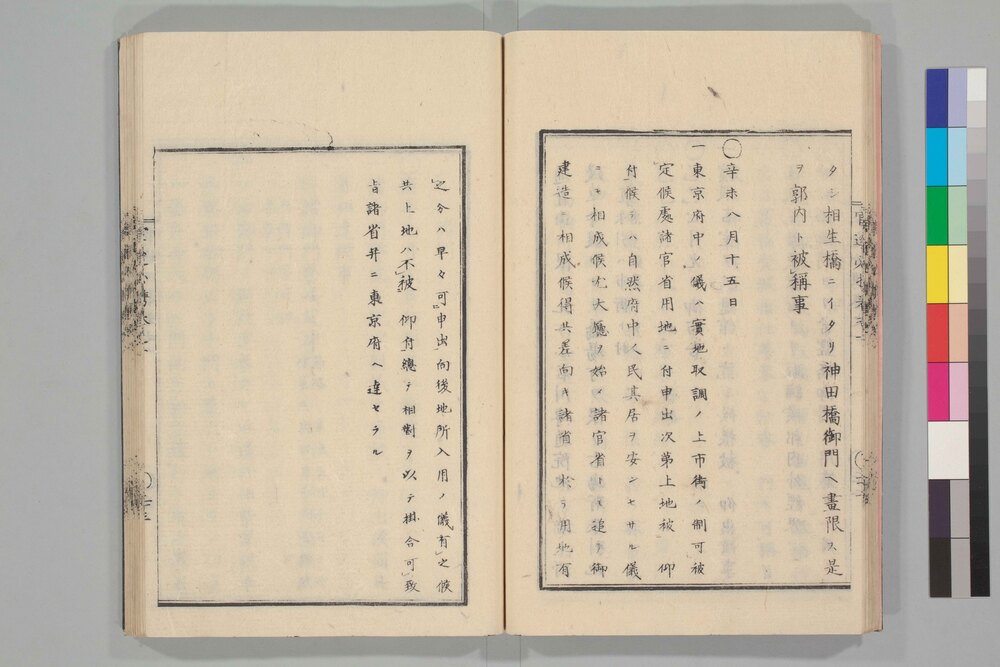 タシ相生橋ニイタリ神田橋御門ヘ畫限ス是
ヲ郭内ト被稱事
〇辛未八月十五日
一東京府中ノ儀ハ實地取調ノ上市街ノ制可被
定候處諸官省用地ニ付申出次第上地被 仰
付候テハ自然府中人民其居ヲ安ンセサル儀
ニモ相成候尤大廳ヲ始メ諸官省トモ追テ御
建造相成候得共差向キ諸省ニテ用地有
之分ハ早々可申出向後地所入用ノ儀有之候
共上地ハ不被 仰付總テ相對ヲ以テ掛合可致
旨諸省并ニ東京府ヘ達セラル